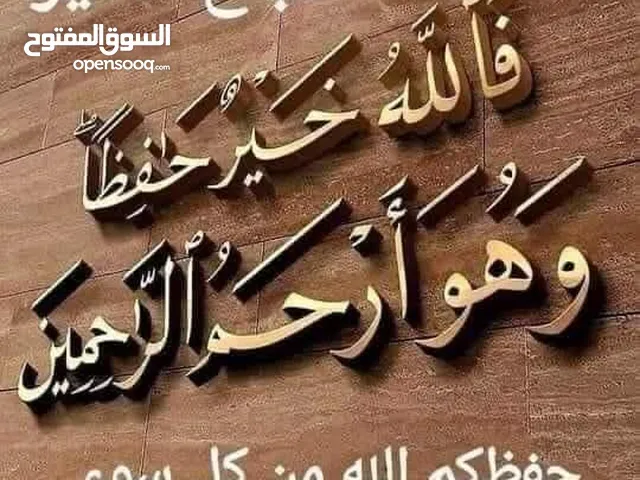 السوق المفتوح
opensooq.com
فَٱللَّهُ خَيْرٌ حَـٰفِظًاۖ
وَهُوَ أَرْحَمُ ٱلرَّٰحِمِينَ
حفظكم الله من كل سوء